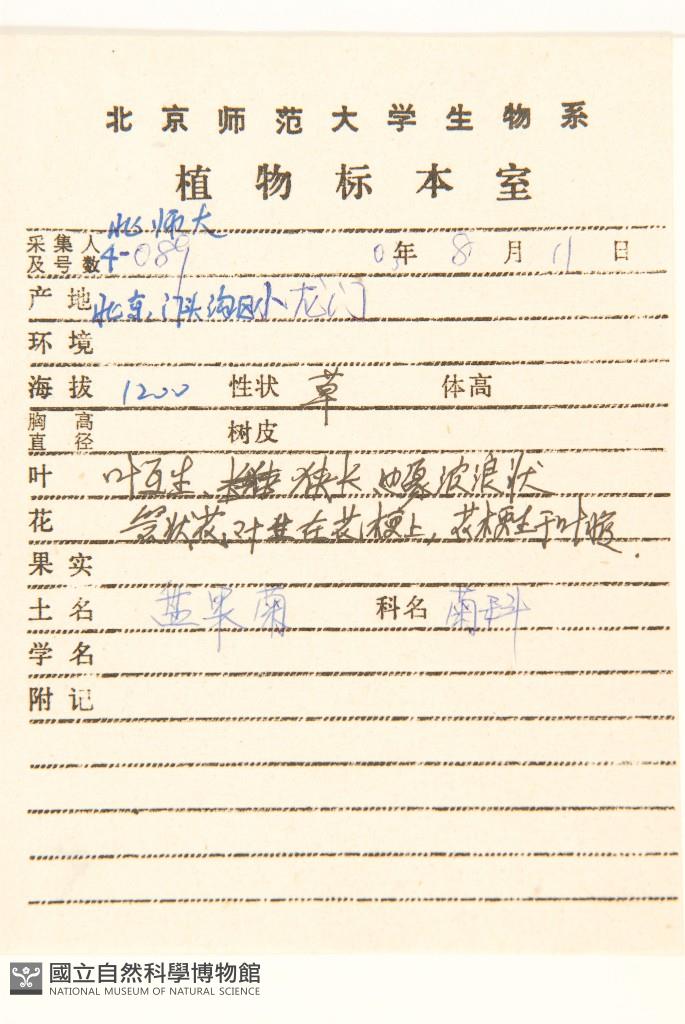 北京师范大学生物系
植物标本室
北师大
采集人及号数 4-089 03年8月11日
产地 北京、门头沟区小龙门
环境
海拔 1200 性状 草 体高
胸高直径 树皮
叶 叶互生、狭长 波浪状
花 伞状花,叶生在花梗上,花梗生于叶腋.
果实
土名 蓝果菊 科名 菊科
学名
附记
國立自然科學博物館
NATIONAL MUSEUM OF NATURAL SCIENCE